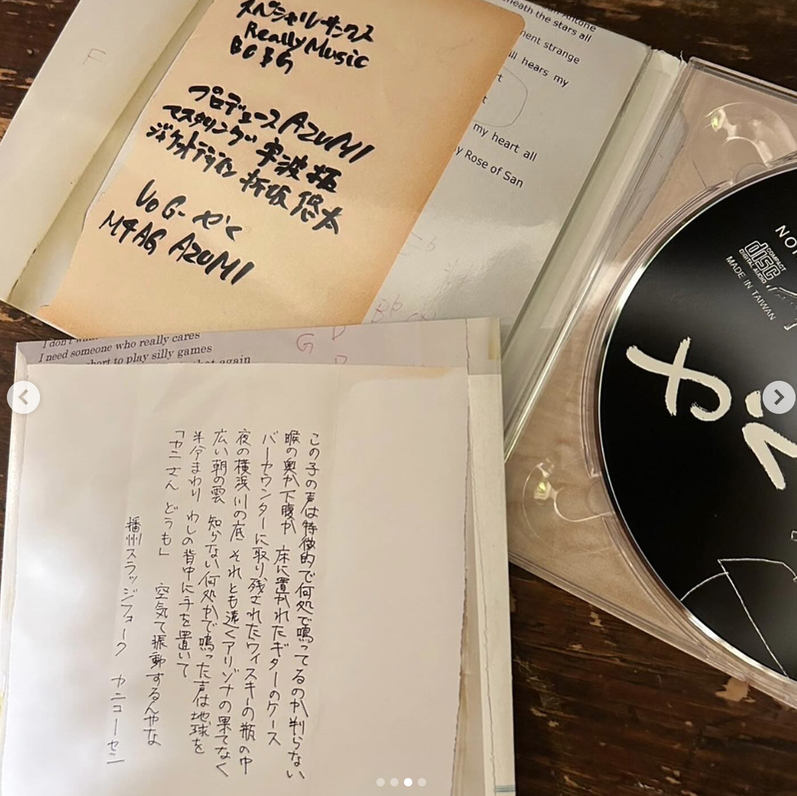 スペシャルサンクス
Really Music
プロデュース AZUMI
マスタリング 宇波拓
ジャケットデザイン 折坂悠太
MアAG AZUMI
F
neath the stars all
ent strange
ll hears my
my heart all
y Rose of San
I need someone who really cares
short to play silly games
again
G
D
Bb
この子の声は特徴的で何処で鳴ってるのか判らない
喉の奥か下腹か 床に置かれたギターのケース
バーカウンターに取り残されたウィスキーの瓶の中
夜の横浜川の底 それとも遠くアリゾナの果てなく
広い朝の雲 知らない何処かで鳴った声は地球を
半分まわり わしの背中に手を置いて
「カニさん どうも」 空気て振動するんやな
播州スラッジフォーク カニコーセン
NOT
COMPACT
disc
DIGITAL AUDIO
MADE IN TAIWAN